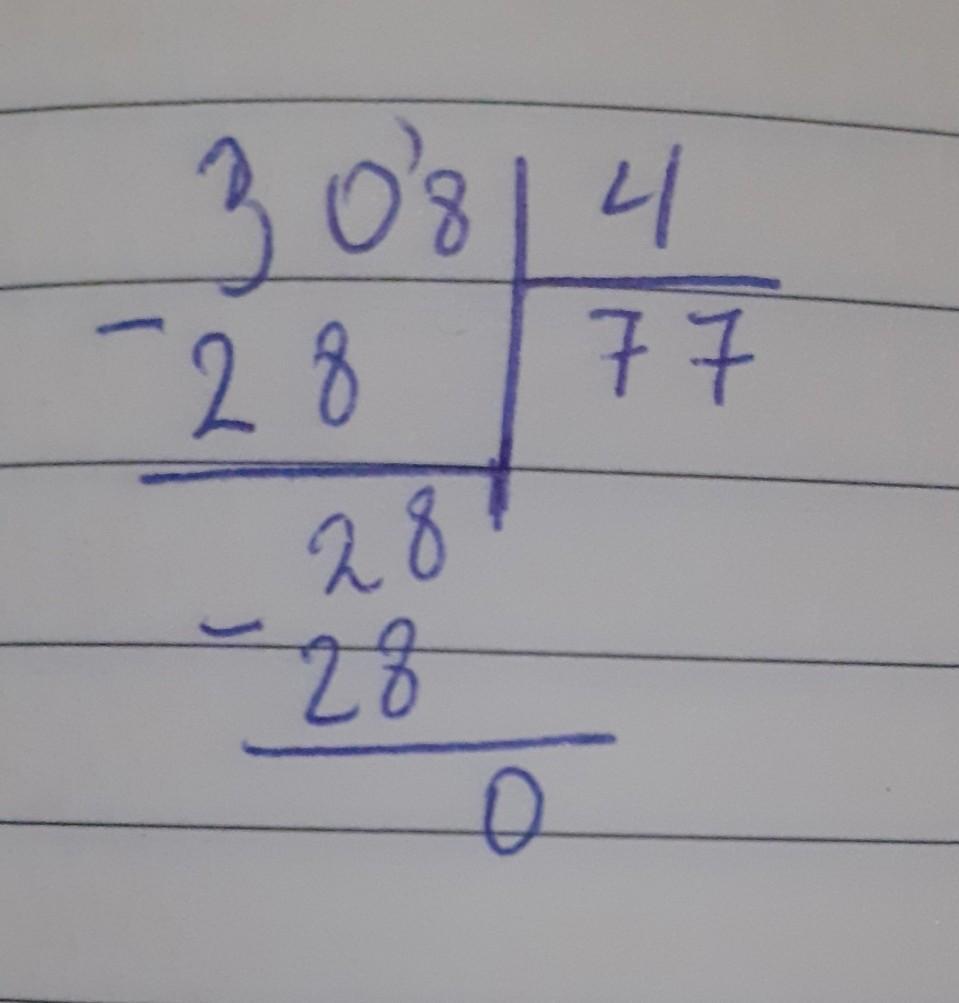 30'8 | 4
- 28 | 77
28
- 28
0